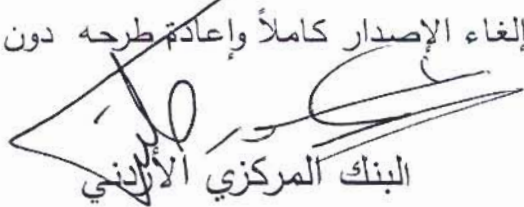 إلغاء الإصدار كاملاً وإعادة طرحه دون
البنك المركزي الأردني